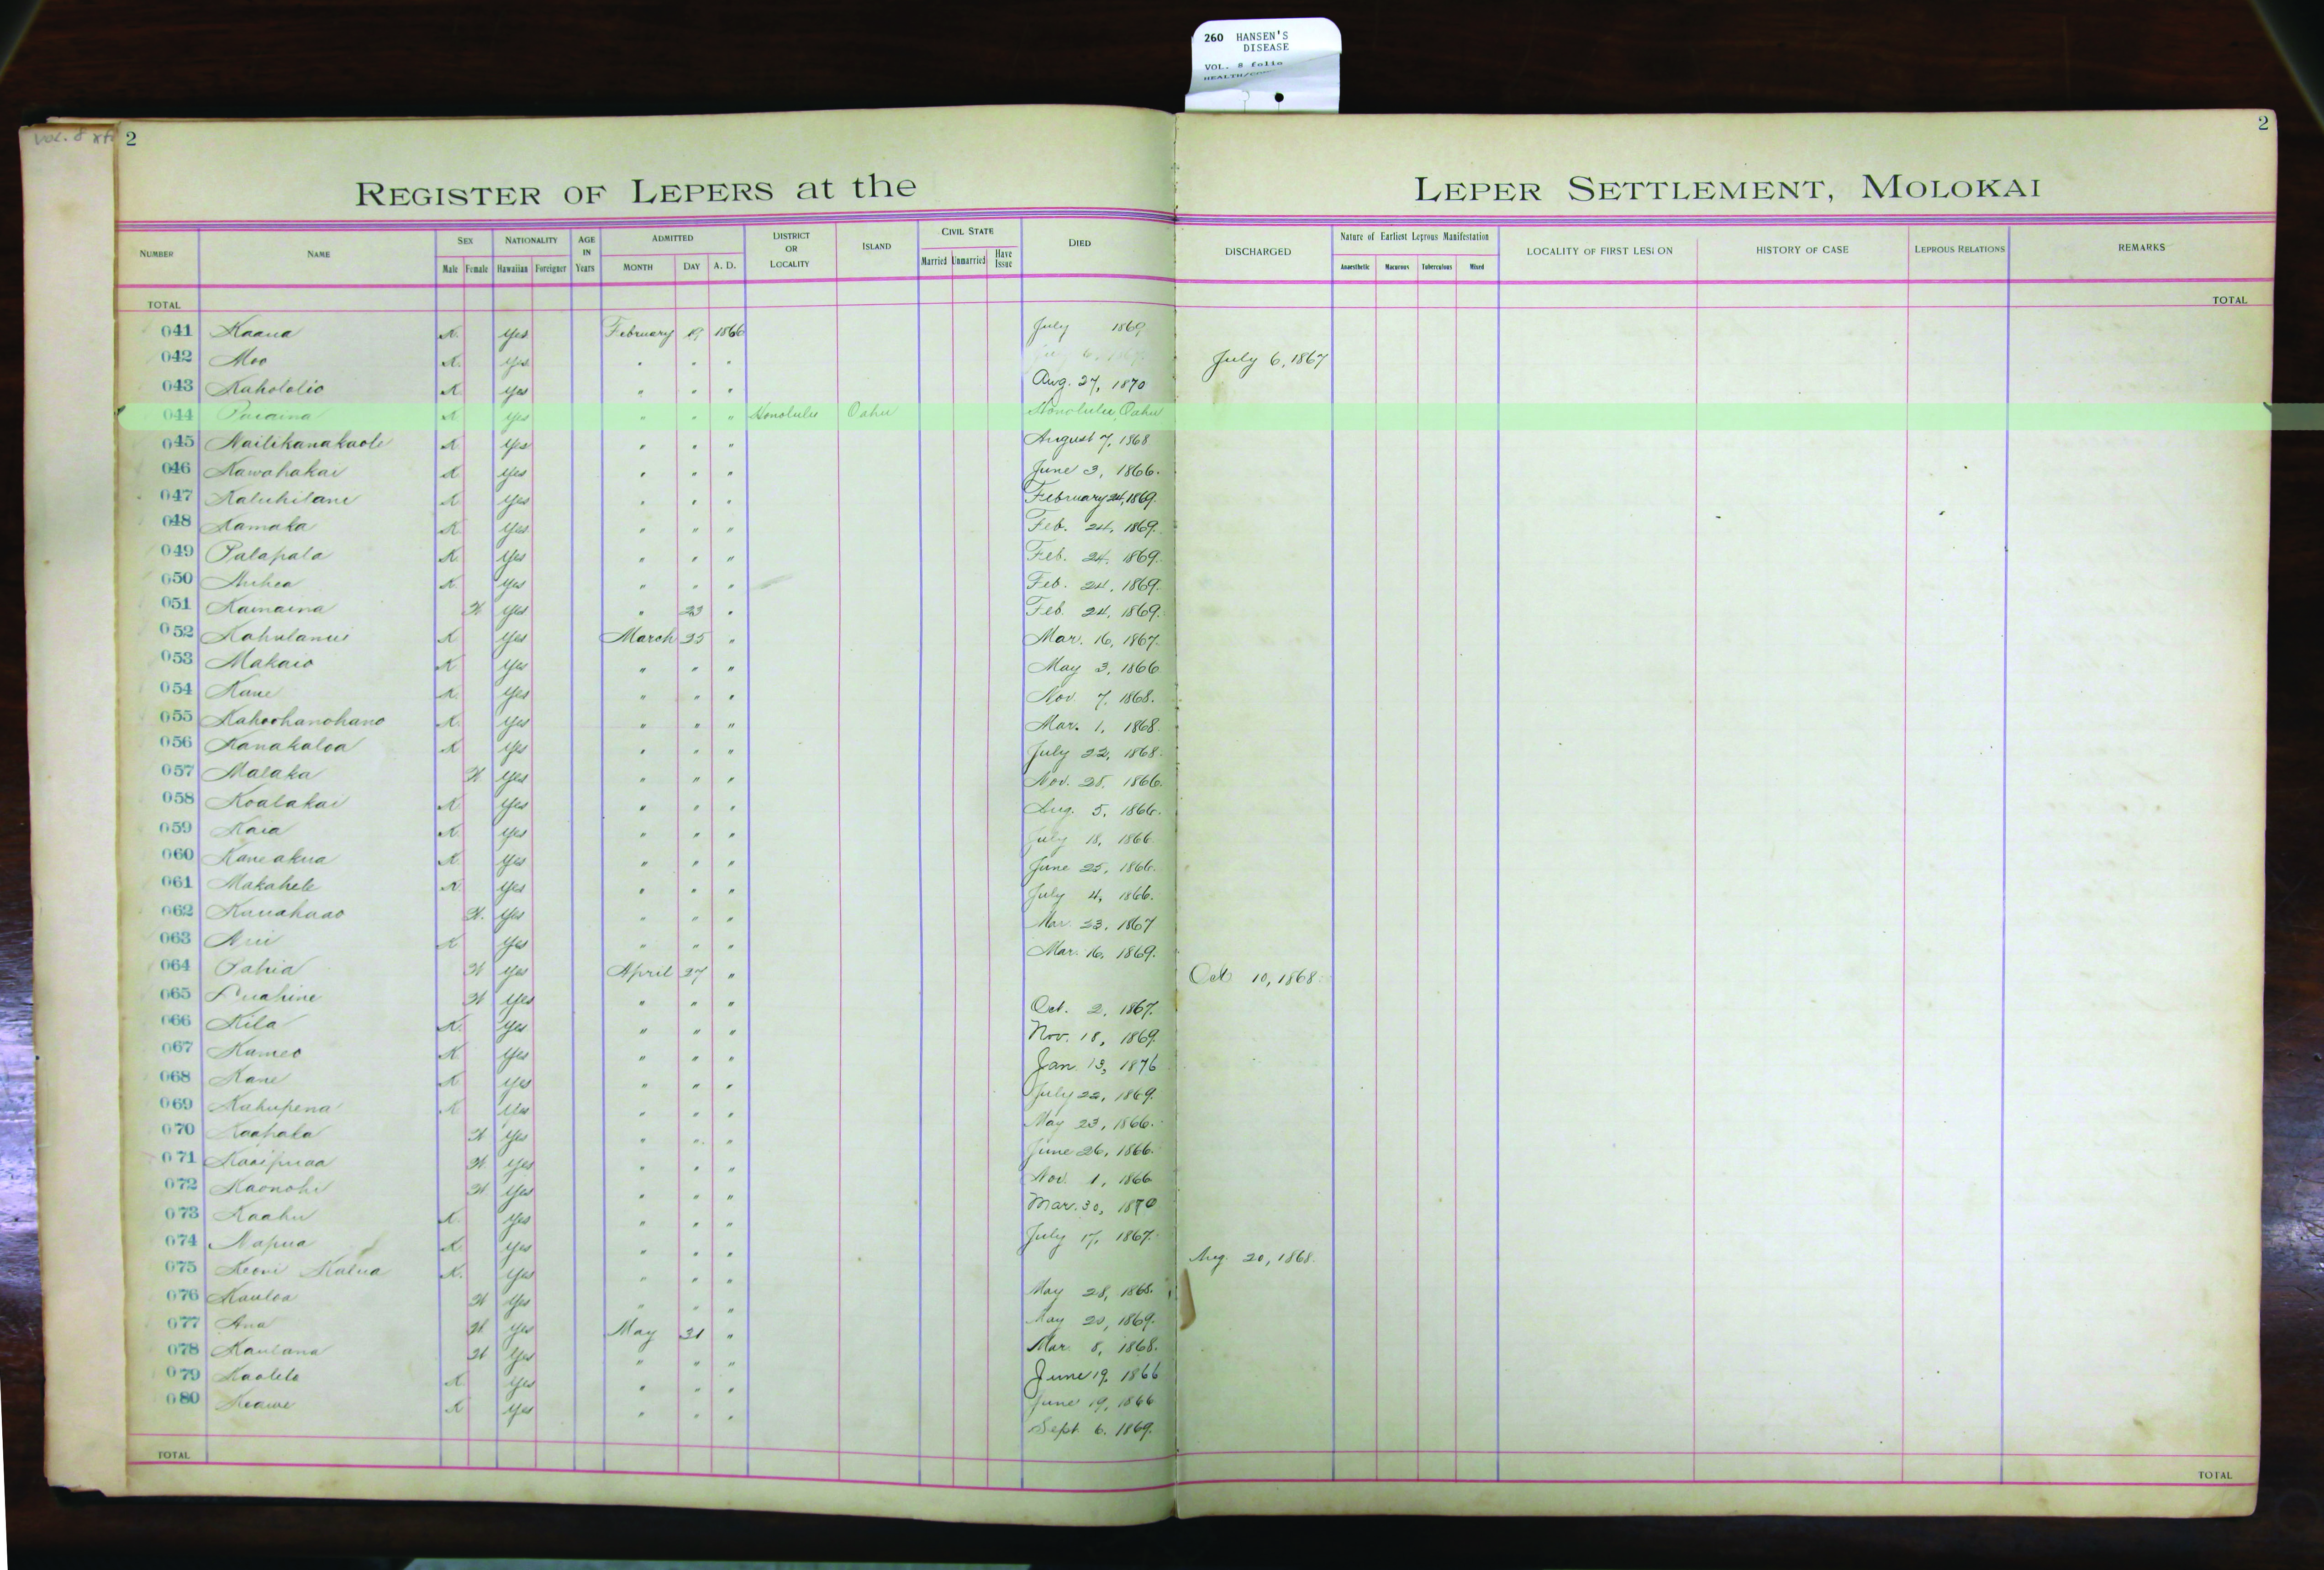 260 HANSEN'S
DISEASE
VOL. 8 folio
Vol. 8
2
2
REGISTER OF LEPERS at the LEPER SETTLEMENT, MOLOKAI
NUMBER NAME SEX NATIONALITY AGE IN Years ADMITTED DISTRICT OR LOCALITY ISLAND CIVIL STATE DIED DISCHARGED Nature of Earliest Leprous Manifestation LOCALITY OF FIRST LESION HISTORY OF CASE LEPROUS RELATIONS REMARKS
Male Female Hawaiian Foreigner MONTH DAY A. D. Married Unmarried Have Issue Anaesthetic Macurous Tuberculous Mixed
TOTAL TOTAL
041 Kaaua K. Yes February 19 1866 July 1869
042 Moo K. Yes " " " July 6, 1867
043 Kahololio K Yes " " " Aug. 27, 1870
044 K Yes " " " Honolulu Oahu Honolulu, Oahu
045 Nailikanakaole K Yes " " " August 7, 1868
046 Kawahakai K Yes " " " June 3, 1866.
047 Kaluhilani K Yes " " " February 24, 1869.
048 Kamaka K Yes " " " Feb. 24, 1869.
049 Palapala K. Yes " " " Feb. 24, 1869.
050 Auhea K. Yes " " " Feb. 24, 1869.
051 Kamaina W Yes " 23 " Feb. 24, 1869.
052 Kahulanui K Yes March 25 " Mar. 16, 1867.
053 Makaio K Yes " " " May 3, 1866
054 Kane K. Yes " " " Nov. 7, 1868.
055 Kahoohanohano K. Yes " " " Mar. 1, 1868.
056 Kanakaloa K Yes " " " July 22, 1868.
057 Malaka W Yes " " " Nov. 28, 1866.
058 Koalakai K Yes " " " Aug. 5, 1866.
059 Kaia K. Yes " " " July 18, 1866.
060 Kaneakua K Yes " " " June 25, 1866.
061 Makahele K. Yes " " " July 4, 1866.
062 Kauahaao W. Yes " " " Mar. 23, 1867
063 K Yes " " " Mar. 16, 1869.
064 Pahia W Yes April 27 " Oct 10, 1868.
065 Luahine W Yes " " " Oct. 2, 1867.
066 Kila K. Yes " " " Nov. 18, 1869.
067 Kameo K Yes " " " Jan. 13, 1876
068 Kane K Yes " " " July 22, 1869.
069 Kahupena K Yes " " " May 23, 1866.
070 Kaahala W Yes " " " June 26, 1866.
071 Kaaipuaa W. Yes " " " Nov. 1, 1866
072 Kaonohi W Yes " " " Mar. 30, 1870
073 Kaahu K. Yes " " " July 17, 1867.
074 Napua K Yes " " " Aug. 20, 1868.
075 Keoni Kalua K. Yes " " " May 28, 1868.
076 Kauloa W Yes " " " May 20, 1869.
077 Ana W. Yes May 31 " Mar. 8, 1868.
078 Kaulana W Yes " " " June 19, 1866
079 Kaolelo K Yes " " " June 19, 1866
080 Keawe K Yes " " " Sept. 6, 1869.
TOTAL TOTAL